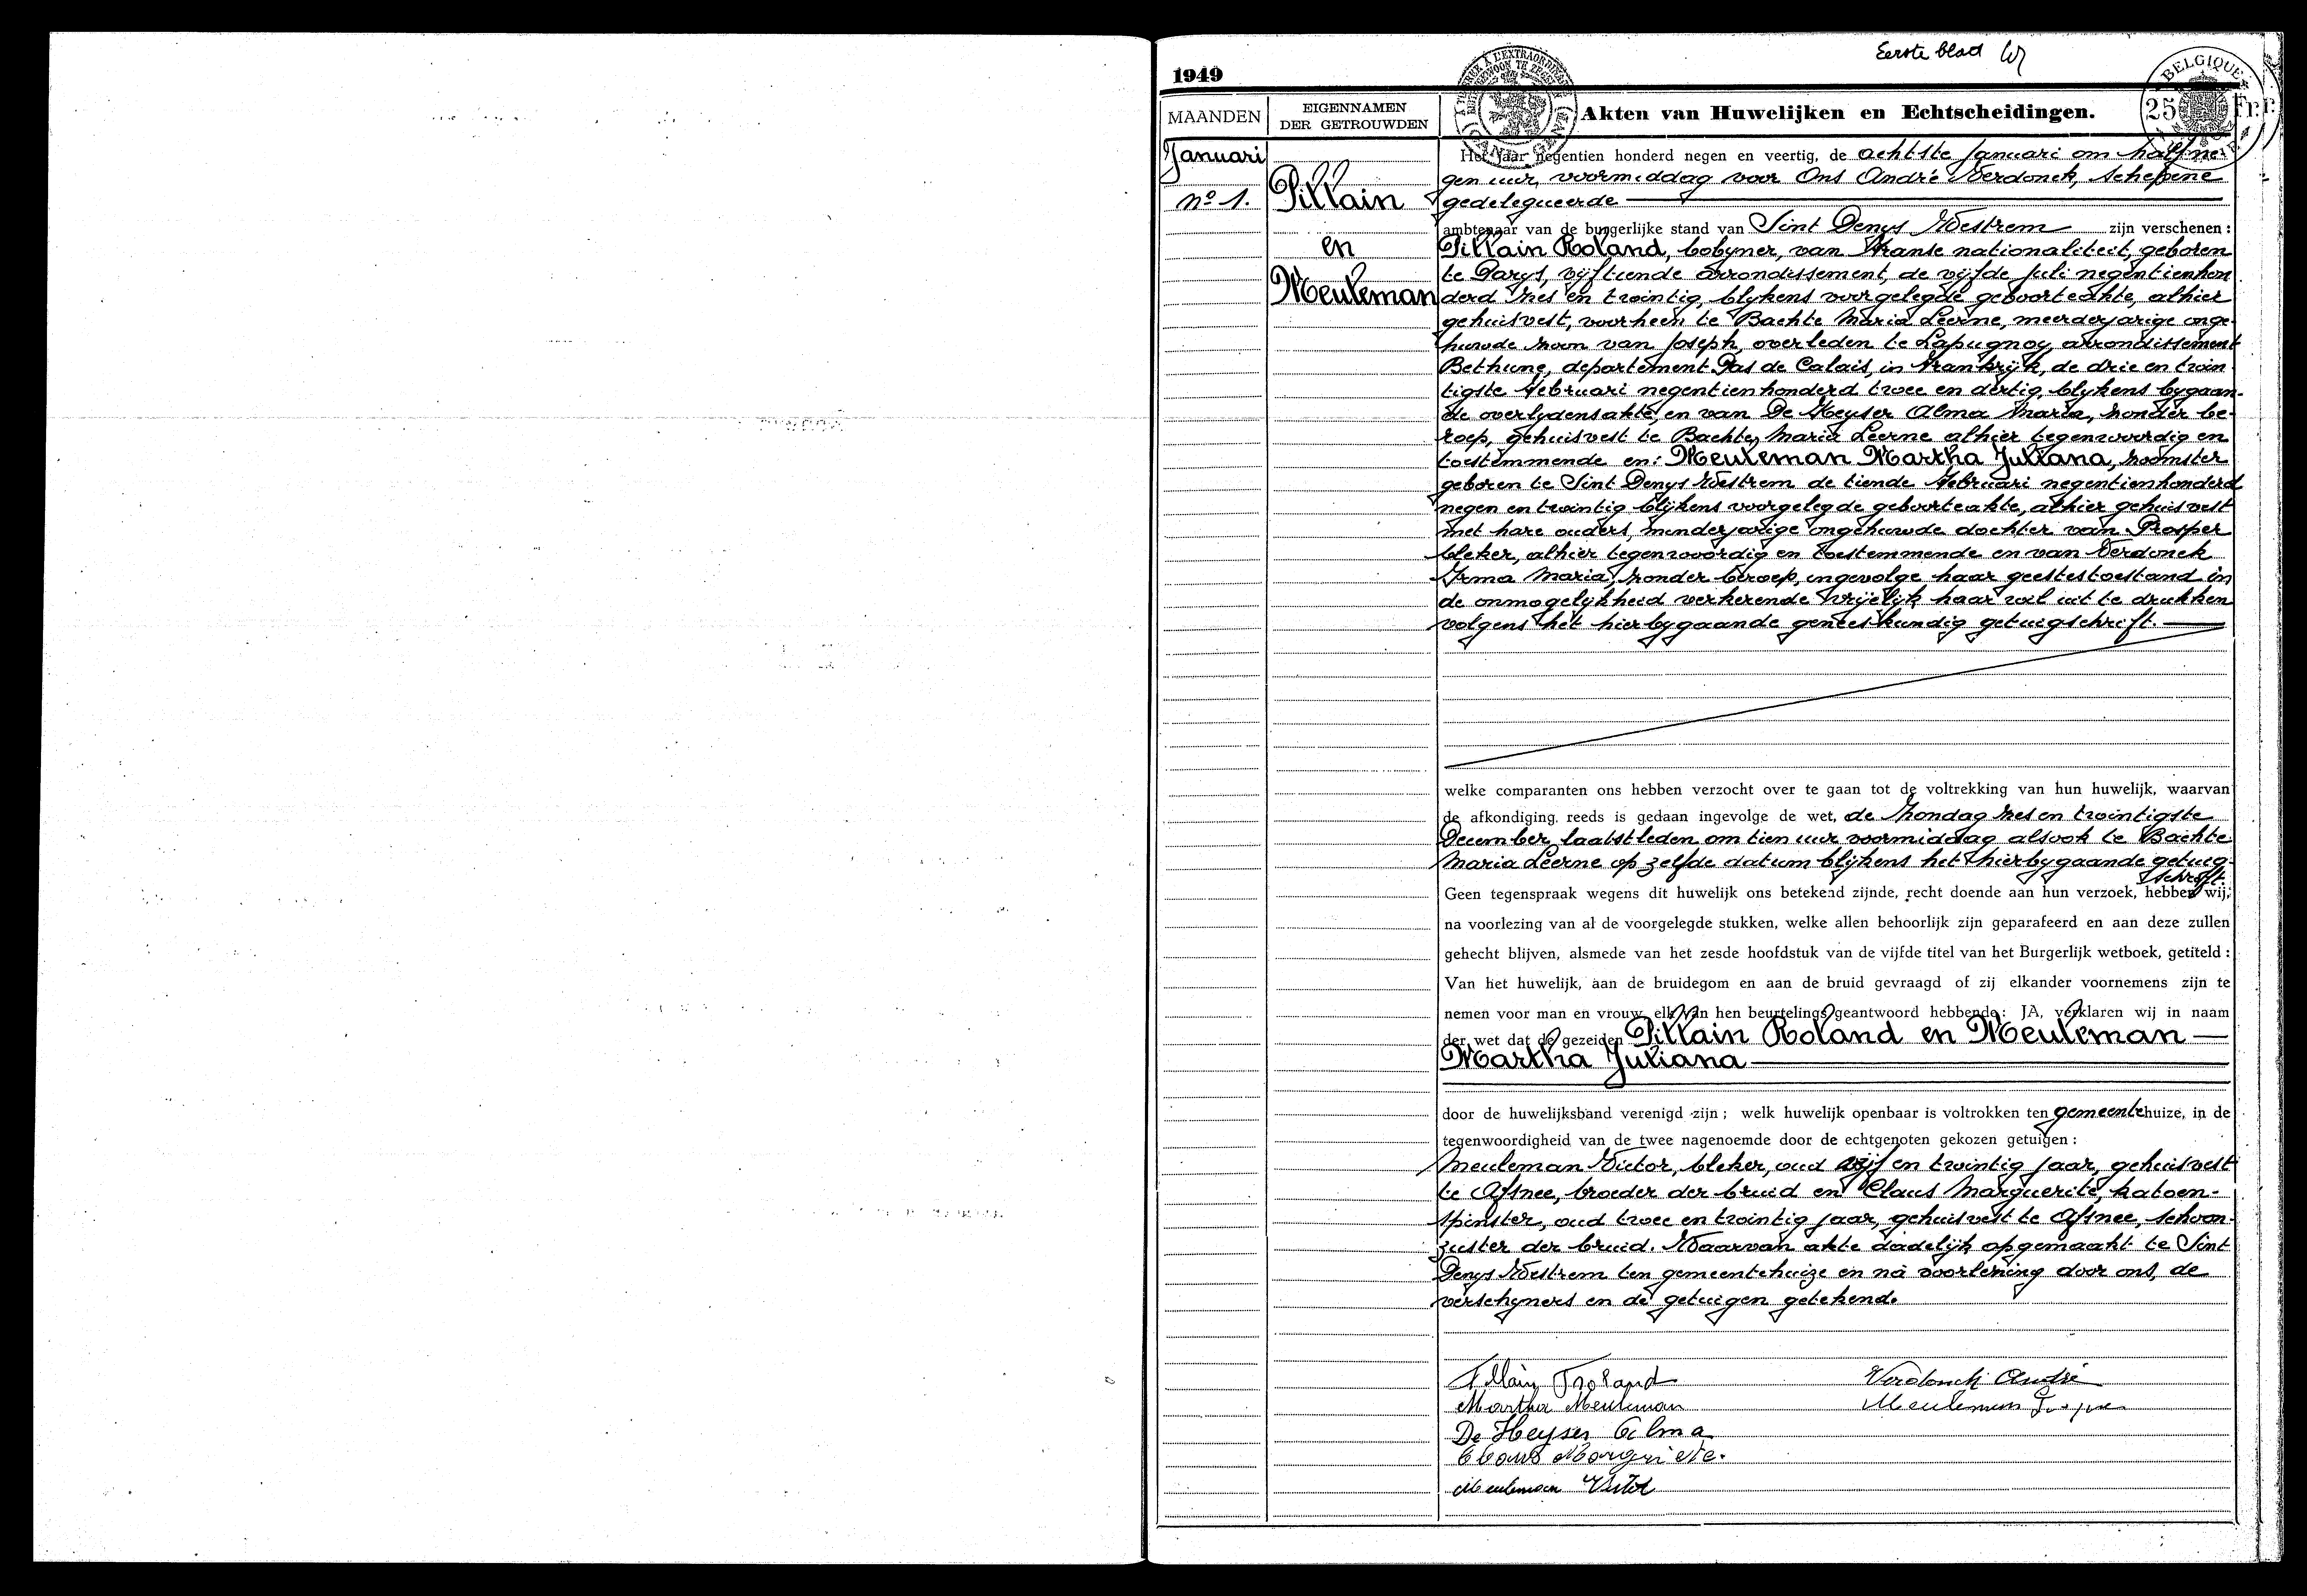 Eerste blad
1949
BELGIQUE
25 Fr.
MAANDEN
EIGENNAMEN
DER GETROUWDEN
Akten van Huwelijken en Echtscheidingen.
Januari
Nº 1.
Pillain
en
Meuleman
Het jaar negentien honderd negen en veertig, de achtste Januari om half ne-
gen uur, voormiddag voor Ons André Verdonck, schepene
gedelegueerde
ambtenaar van de burgerlijke stand van Sint Denys Westrem zijn verschenen :
Pillain Roland, bobyner, van Franse nationaliteit, geboren
te Parys, vyftiende arrondissement, de vyfde Juli negentienhon
derd zes en twintig, blykens voorgelegde geboorteakte, alhier
gehuisvest, voorheen te Bachte Maria Leerne, meerderjarige onge-
huwde zoon van Joseph, overleden te Lapugnoy, arrondissement
Bethune, departement Pas de Calais, in Frankrijk, de drie en twin
tigste Februari negentienhonderd twee en dertig, blykens bygaan-
de overlydensakte, en van De Keyser Alma Maria, zonder be-
roep, gehuisvest te Bachte Maria Leerne alhier tegenwoordig en
toestemmende en: Meuleman Martha Juliana, zoomster
geboren te Sint Denys Westrem de tiende Februari negentienhonderd
negen en twintig blijkens voorgelegde geboorteakte, alhier gehuisvest
met hare ouders, minderjarige ongehuwde dochter van Prosper
bleker, alhier tegenwoordig en toestemmende en van Verdonck
Irma Maria, zonder beroep, ingevolge haar geestestoestand in
de onmogelykheid verkerende vrijelijk haar wil uit te drukken
volgens het hierbygaande geneeskundig getuigschrift.
welke comparanten ons hebben verzocht over te gaan tot de voltrekking van hun huwelijk, waarvan
de afkondiging reeds is gedaan ingevolge de wet, de Zondag zes en twintigste
December laatstleden om tien uur voormiddag alsook te Bachte
Maria Leerne op zelfde datum blijkens het hierbygaande getuig-
schrift.
Geen tegenspraak wegens dit huwelijk ons betekend zijnde, recht doende aan hun verzoek, hebben wij,
na voorlezing van al de voorgelegde stukken, welke allen behoorlijk zijn geparafeerd en aan deze zullen
gehecht blijven, alsmede van het zesde hoofdstuk van de vijfde titel van het Burgerlijk wetboek, getiteld :
Van het huwelijk, aan de bruidegom en aan de bruid gevraagd of zij elkander voornemens zijn te
nemen voor man en vrouw, elk van hen beurtelings geantwoord hebbende: JA, verklaren wij in naam
der wet dat de gezeiden Pillain Roland en Meuleman
Martha Juliana
door de huwelijksband verenigd zijn ; welk huwelijk openbaar is voltrokken ten gemeentehuize, in de
tegenwoordigheid van de twee nagenoemde door de echtgenoten gekozen getuigen :
Meuleman Victor, bleker, oud vijf en twintig jaar, gehuisvest
te Afsnee, broeder der bruid en Claus Marguerite, katoen-
spinster, oud twee en twintig jaar, gehuisvest te Afsnee, schoon-
zuster der bruid. Waarvan akte dadelijk opgemaakt te Sint
Denys Westrem ten gemeentehuize en na voorlezing door ons, de
verschyners en de getuigen getekend.
Pillain Roland
Verdonck André
Martha Meuleman
Meuleman
De Keyser Alma
Claus Margriete.
Meuleman Victor